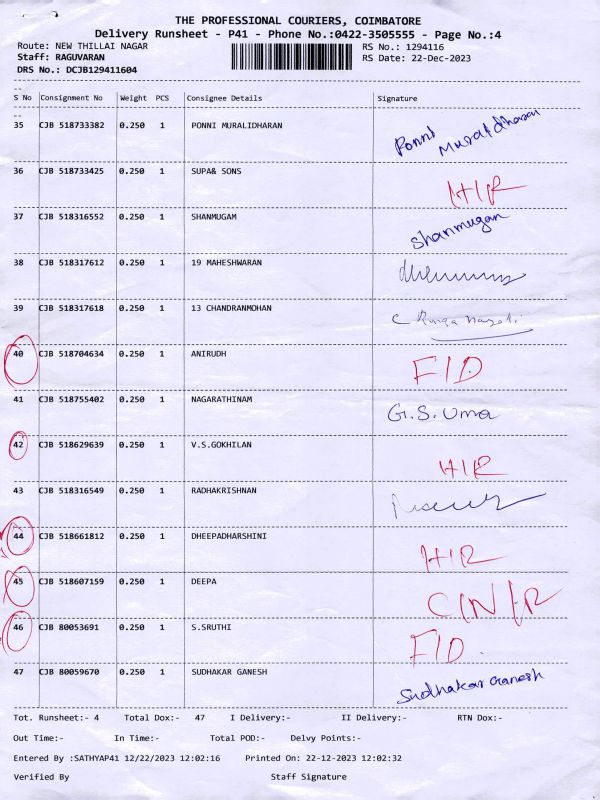 THE PROFESSIONAL COURIERS, COIMBATORE
Delivery Runsheet - P41 - Phone No.:0422-3505555 - Page No.:4
Route: NEW THILLAI NAGAR RS No.: 1294116
Staff: RAGUVARAN RS Date: 22-Dec-2023
DRS No.: DCJB129411604
--
S No Consignment No Weight PCS Consignee Details Signature
--
35 CJB 518733382 0.250 1 PONNI MURALIDHARAN Ponni Muralidharan
36 CJB 518733425 0.250 1 SUPA& SONS H/R
37 CJB 518316552 0.250 1 SHANMUGAM Shanmugan
38 CJB 518317612 0.250 1 19 MAHESHWARAN
39 CJB 518317618 0.250 1 13 CHANDRANMOHAN
40 CJB 518704634 0.250 1 ANIRUDH F/D
41 CJB 518755402 0.250 1 NAGARATHINAM G.S.Uma
42 CJB 518629639 0.250 1 V.S.GOKHILAN H/R
43 CJB 518316549 0.250 1 RADHAKRISHNAN
44 CJB 518661812 0.250 1 DHEEPADHARSHINI H/R
45 CJB 518607159 0.250 1 DEEPA C/N/R
46 CJB 80053691 0.250 1 S.SRUTHI F/D.
47 CJB 80059670 0.250 1 SUDHAKAR GANESH Sudhakar Ganesh
Tot. Runsheet:- 4 Total Dox:- 47 I Delivery:- II Delivery:- RTN Dox:-
Out Time:- In Time:- Total POD:- Delvy Points:-
Entered By :SATHYAP41 12/22/2023 12:02:16 Printed On: 22-12-2023 12:02:32
Verified By Staff Signature